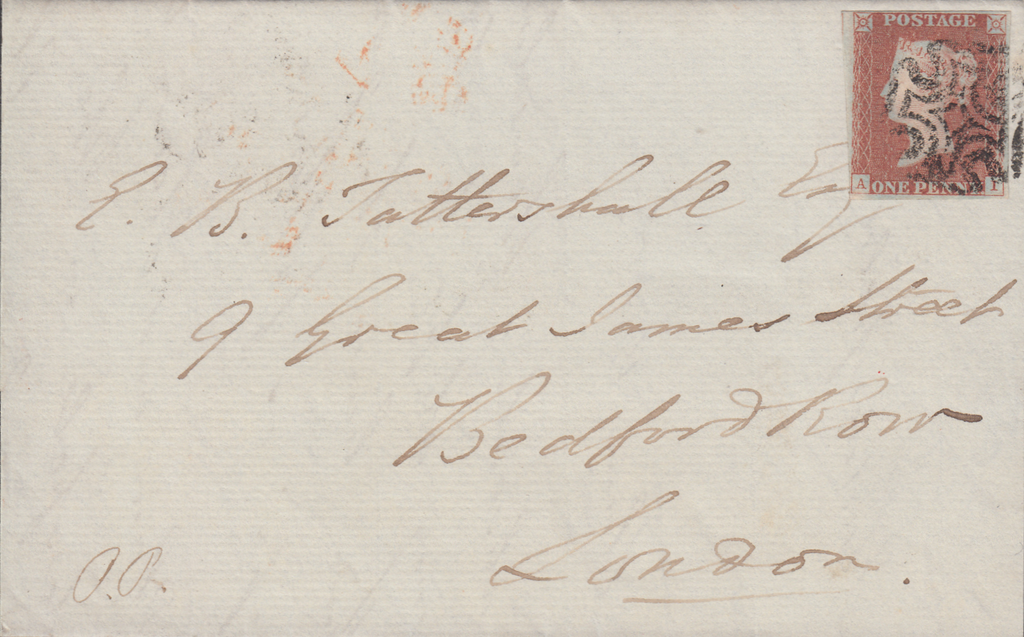 POSTAGE
A ONE PENNY
E. B. Tattershall Esq
9 Great James Street
Bedford Row
London.
P.P.